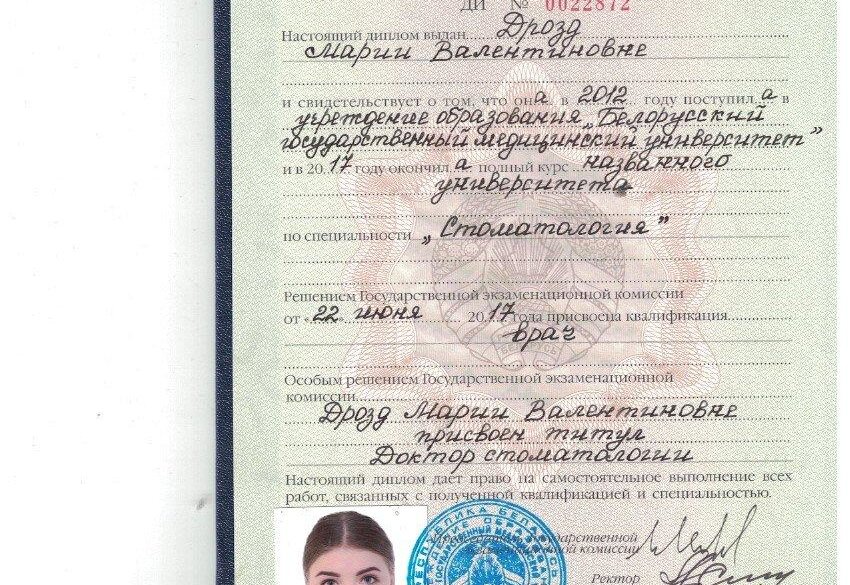 ДИ № 0022872
Настоящий диплом выдан Дрозд
Марии Валентиновне
и свидетельствует о том, что он а в 2012 году поступил а в
учреждение образования „Белорусский
государственный медицинский университет”
и в 20 17 году окончил а полный курс названного
университета
по специальности „Стоматология”
Решением Государственной экзаменационной комиссии
от «22» июня 20 17 года присвоена квалификация
врач
Особым решением Государственной экзаменационной
комиссии
Дрозд Марии Валентиновне
присвоен титул
Доктор стоматологии
Настоящий диплом дает право на самостоятельное выполнение всех
работ, связанных с полученной квалификацией и специальностью.
Председатель Государственной
экзаменационной комиссии
Ректор